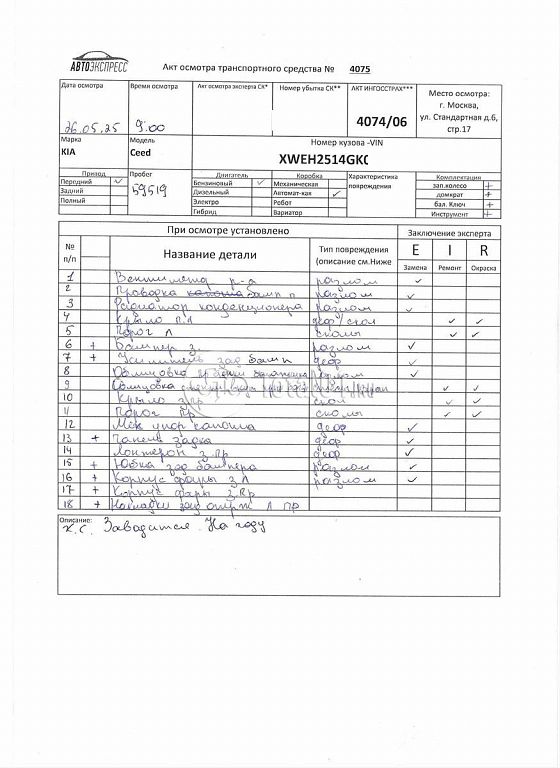 АВТОЭКСПРЕСС
Акт осмотра транспортного средства № 4075
Дата осмотра Время осмотра Акт осмотра эксперта СК* Номер убытка СК** АКТ ИНГОССТРАХ*** Место осмотра:
г. Москва,
ул. Стандартная д.6,
стр.17
26.05.25 9:00 4074/06
Марка Модель Номер кузова -VIN
KIA Ceed XWEH2514GK
Привод Пробег Двигатель Коробка Характеристика повреждения Комплектация
Передний ✓ 59519 Бензиновый ✓ Механическая зап.колесо +
Задний Дизельный Автомат-кая ✓ домкрат +
Полный Электро Робот бал. Ключ +
Гибрид Вариатор Инструмент +
При осмотре установлено Заключение эксперта
№ п/п Название детали Тип повреждения (описание см.Ниже E I R
Замена Ремонт Окраска
1 р-а разлом ✓
2 Проводка бамп п разлом ✓
3 Радиатор кондиционера разлом ✓
4 Крыло п.л деф/скол ✓ ✓
5 Порог Л сколы ✓ ✓
6 + Бампер з. разлом ✓
7 + Усилитель зад бамп деф ✓
8 Облицовка багажника разлом ✓
9 Облицовка ✓ ✓
10 Крыло з.пр скол ✓ ✓
11 Порог пр сколы ✓ ✓
12 Мех упор капота деф ✓
13 + Панель задка деф ✓
14 Лонжерон з.пр деф ✓
15 + Юбка зад бампера разлом ✓
16 + Корпус фары з Л разлом ✓
17 + Корпус фары з.пр
18 + Накладки зад Л ПР
Описание:
Х.С. Заводится. На ходу